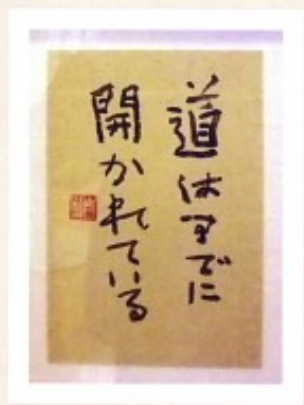 道はすでに
開かれている